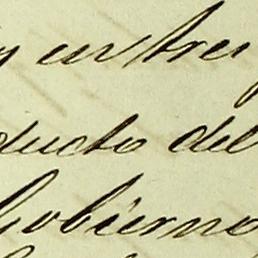 y en trei
ducto del
Gobierno